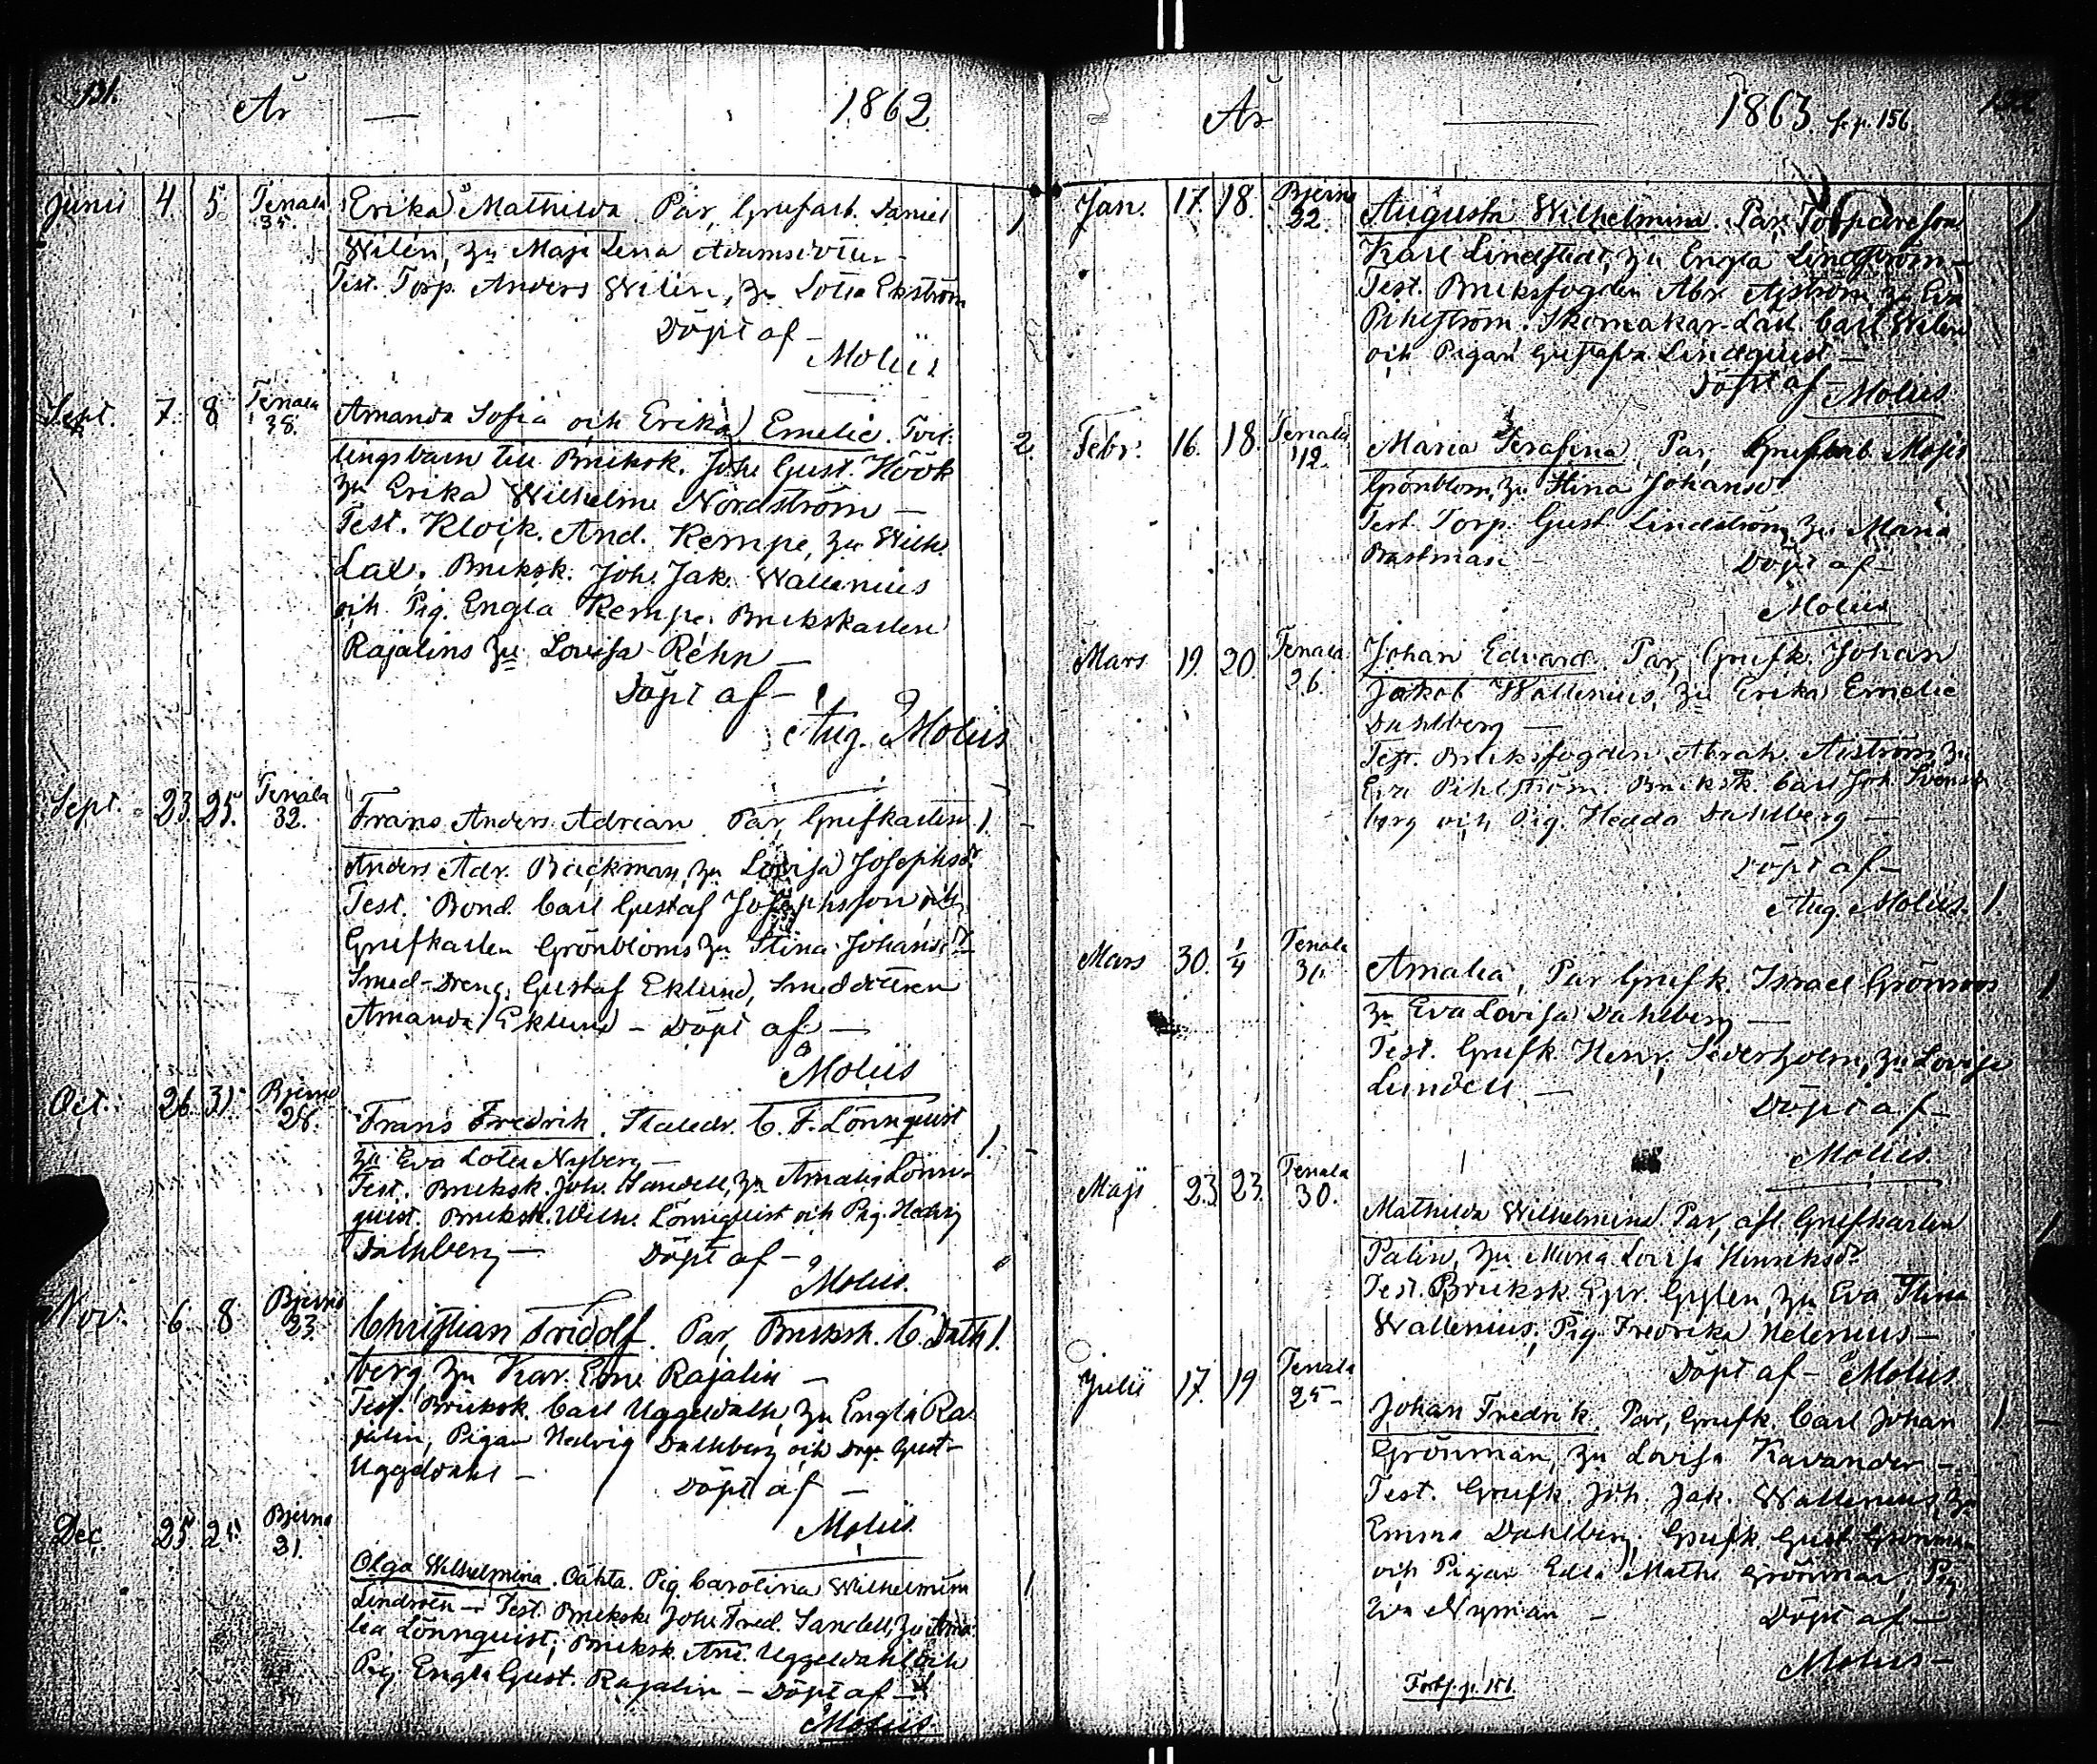 131.
År — 1862.
Junii 4. 5. Tenala 35. Erika Mathilda Par, Grufarb. Daniel 1
Wilén, hu Maja Lena Adamsdotter
Test. Torp. Anders Wilén, hu Lotta Ekström
Döpt af —
Moliis
Sept. 7. 8 Tenala 38. Amanda Sofia och Erika Emelie. Tvil- 2.
lingsbarn till Bruksk. Joh. Gust. Höök
hu Erika Wilhelm. Nordström —
Test. Klock. And. Kempe, hu Wilh.
Lax. Bruksk. Joh. Jak. Wallenius
och Pig. Engla Kempe. Brukskarlen
Rajalins hu Lovisa Rehn —
Döpt af —
Aug. Moliis
Sept. 23. 25. Tenala 32. Frans Anders Adrian. Par, Grufkarlen 1.
Anders Adr. Backman, hu Lovisa Josephsdr
Test. Bond. Carl Gustaf Josephsson och
Grufkarlen Grönbloms hu Stina Johansdr
Smed-Dreng. Gustaf Eklund, Smeddottren
Amanda Eklund — Döpt af —
Moliis
Oct. 26. 31. Bjerno 28. Frans Fredrik. Stalldr. C. F. Lönnquist 1.
hu Eva Lotta Nyberg —
Test. Bruksk. Joh. Sandell, hu Amalia Lönn-
quist. Bruksk. Wilh. Lönnquist och Pig. Hedvig
Dahlberg — Döpt af —
Moliis.
Nov. 6. 8 Bjerno 23. Christian Fridolf. Par, Bruksk. C. Dahl 1.
berg hu Kar. Erne Rajalin —
Test. Bruksk. Carl Uggeldahl, hu Engla Ra-
jalin, Pigan Hedvig Dahlberg och Drg. Gust.
Uggeldahl — Döpt af —
Moliis
Dec. 25. 25. Bjerno 31. Olga Wilhelmina. Oäkta. Pig. Carolina Wilhelmina 1
Lindroën — Test. Bruksk. Joh. Fred. Sandell, hu Ama-
lia Lönnquist; Bruksk. And. Uggeldahl och
Pig. Engla Gust. Rajalin — Döpt af —
Moliis.
År — 1863. se p. 156
Jan. 17. 18. Bjerno 22. Augusta Wilhelmina. Par, Torpareson 1
Karl Lindstedt, hu Engla Lindström —
Test. Bruksfogden Abr. Aström, hu Eva
Pihlström. Skomakar-Lärl. Carl Wilén
och Pigan Gustafva Lindquist —
Döpt af — Moliis
Febr. 16. 18. Tenala 42. Maria Serafina, Par, Grufarb. Moses
Grönblom, hu Stina Johansdr
Test. Torp. Gust. Lindström, hu Maria
Bastman — Döpt af —
Moliis
Mars 19. 20. Tenala 26. Johan Edvard. Par, Grufk. Johan
Jakob Wallenius, hu Erika Emelie
Dahlberg —
Test. Bruksfogden Abrah. Aström, hu
Eva Pihlström. Bruksk. Carl Joh. Svens-
berg och Pig. Hedda Dahlberg —
Döpt af —
Aug. Moliis. 1.
Mars 30. 1/4 Tenala Amalia, Par Grufk. Israel Grönroos 1
hu Eva Lovisa Dahlberg —
Test. Grufk. Henr. Sederholm, hu Lovisa
Lundell — Döpt af —
Moliis.
Maji 23 23. Tenala 30. Mathilda Wilhelmina Par, afl. Grufkarlen 1
Palin, hu Maria Lovisa Henriksdr
Test. Bruksk. Gylén, hu Eva Stina
Wallenius, Pig. Fredrika Helenius —
Döpt af — Moliis.
Julii 17. 19 Tenala 25 Johan Fredrik. Par, Grufk. Carl Johan 1 —
Grönman, hu Lovisa Kavander —
Test. Grufk. Joh. Jak. Wallenius, hu
Emma Dahlberg. Grufk. Gust. Grönman
och Pigan Edla Math. Grönman, Pig.
Eva Nyman — Döpt af —
Moliis —
Forts. p. 156.